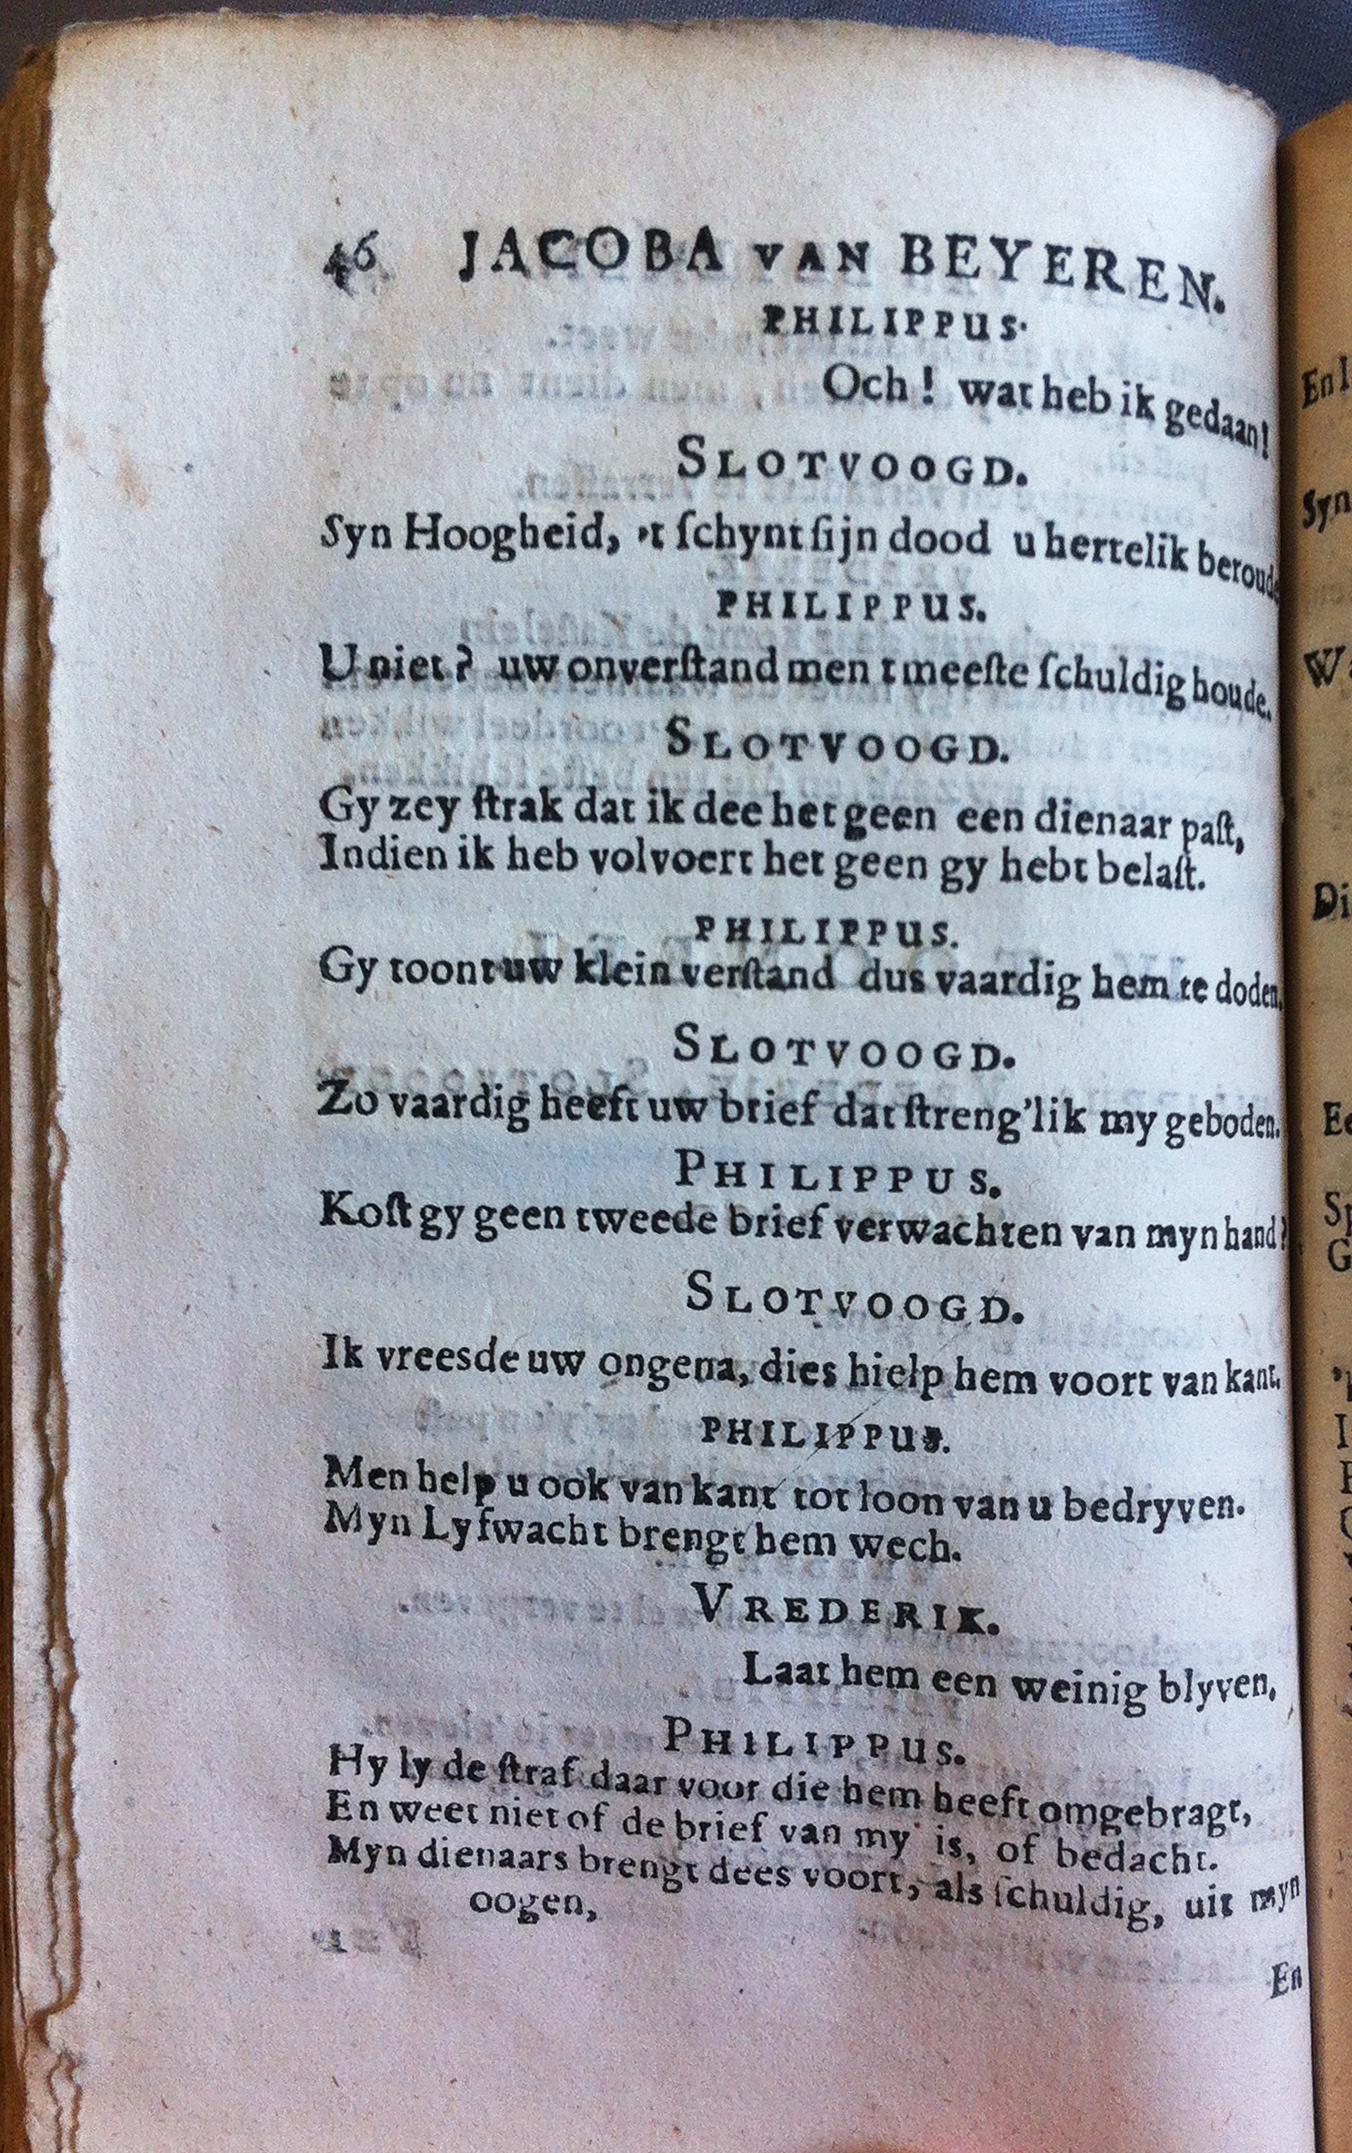 46 JACOBA VAN BEYEREN.
PHILIPPUS.
Och! wat heb ik gedaan!
SLOTVOOGD.
Syn Hoogheid, 't ſchynt ſijn dood u hertelik beroude
PHILIPPUS.
U niet? uw onverſtand men t meeſte ſchuldig houde.
SLOTVOOGD.
Gy zey ſtrak dat ik dee het geen een dienaar paſt,
Indien ik heb volvoert het geen gy hebt belaſt.
PHILIPPUS.
Gy toont uw klein verſtand dus vaardig hem te doden.
SLOTVOOGD.
Zo vaardig heeft uw brief dat ſtreng'lik my geboden.
PHILIPPUS.
Koſt gy geen tweede brief verwachten van myn hand?
SLOTVOOGD.
Ik vreesde uw ongena, dies hielp hem voort van kant.
PHILIPPUS.
Men help u ook van kant tot loon van u bedryven.
Myn Lyfwacht brengt hem wech.
VREDERIK.
Laat hem een weinig blyven,
PHILIPPUS.
Hy ly de ſtraf daar voor die hem heeft omgebragt,
En weet niet of de brief van my is, of bedacht.
Myn dienaars brengt dees voort, als ſchuldig, uit myn
oogen,
En
En
Syn
Di